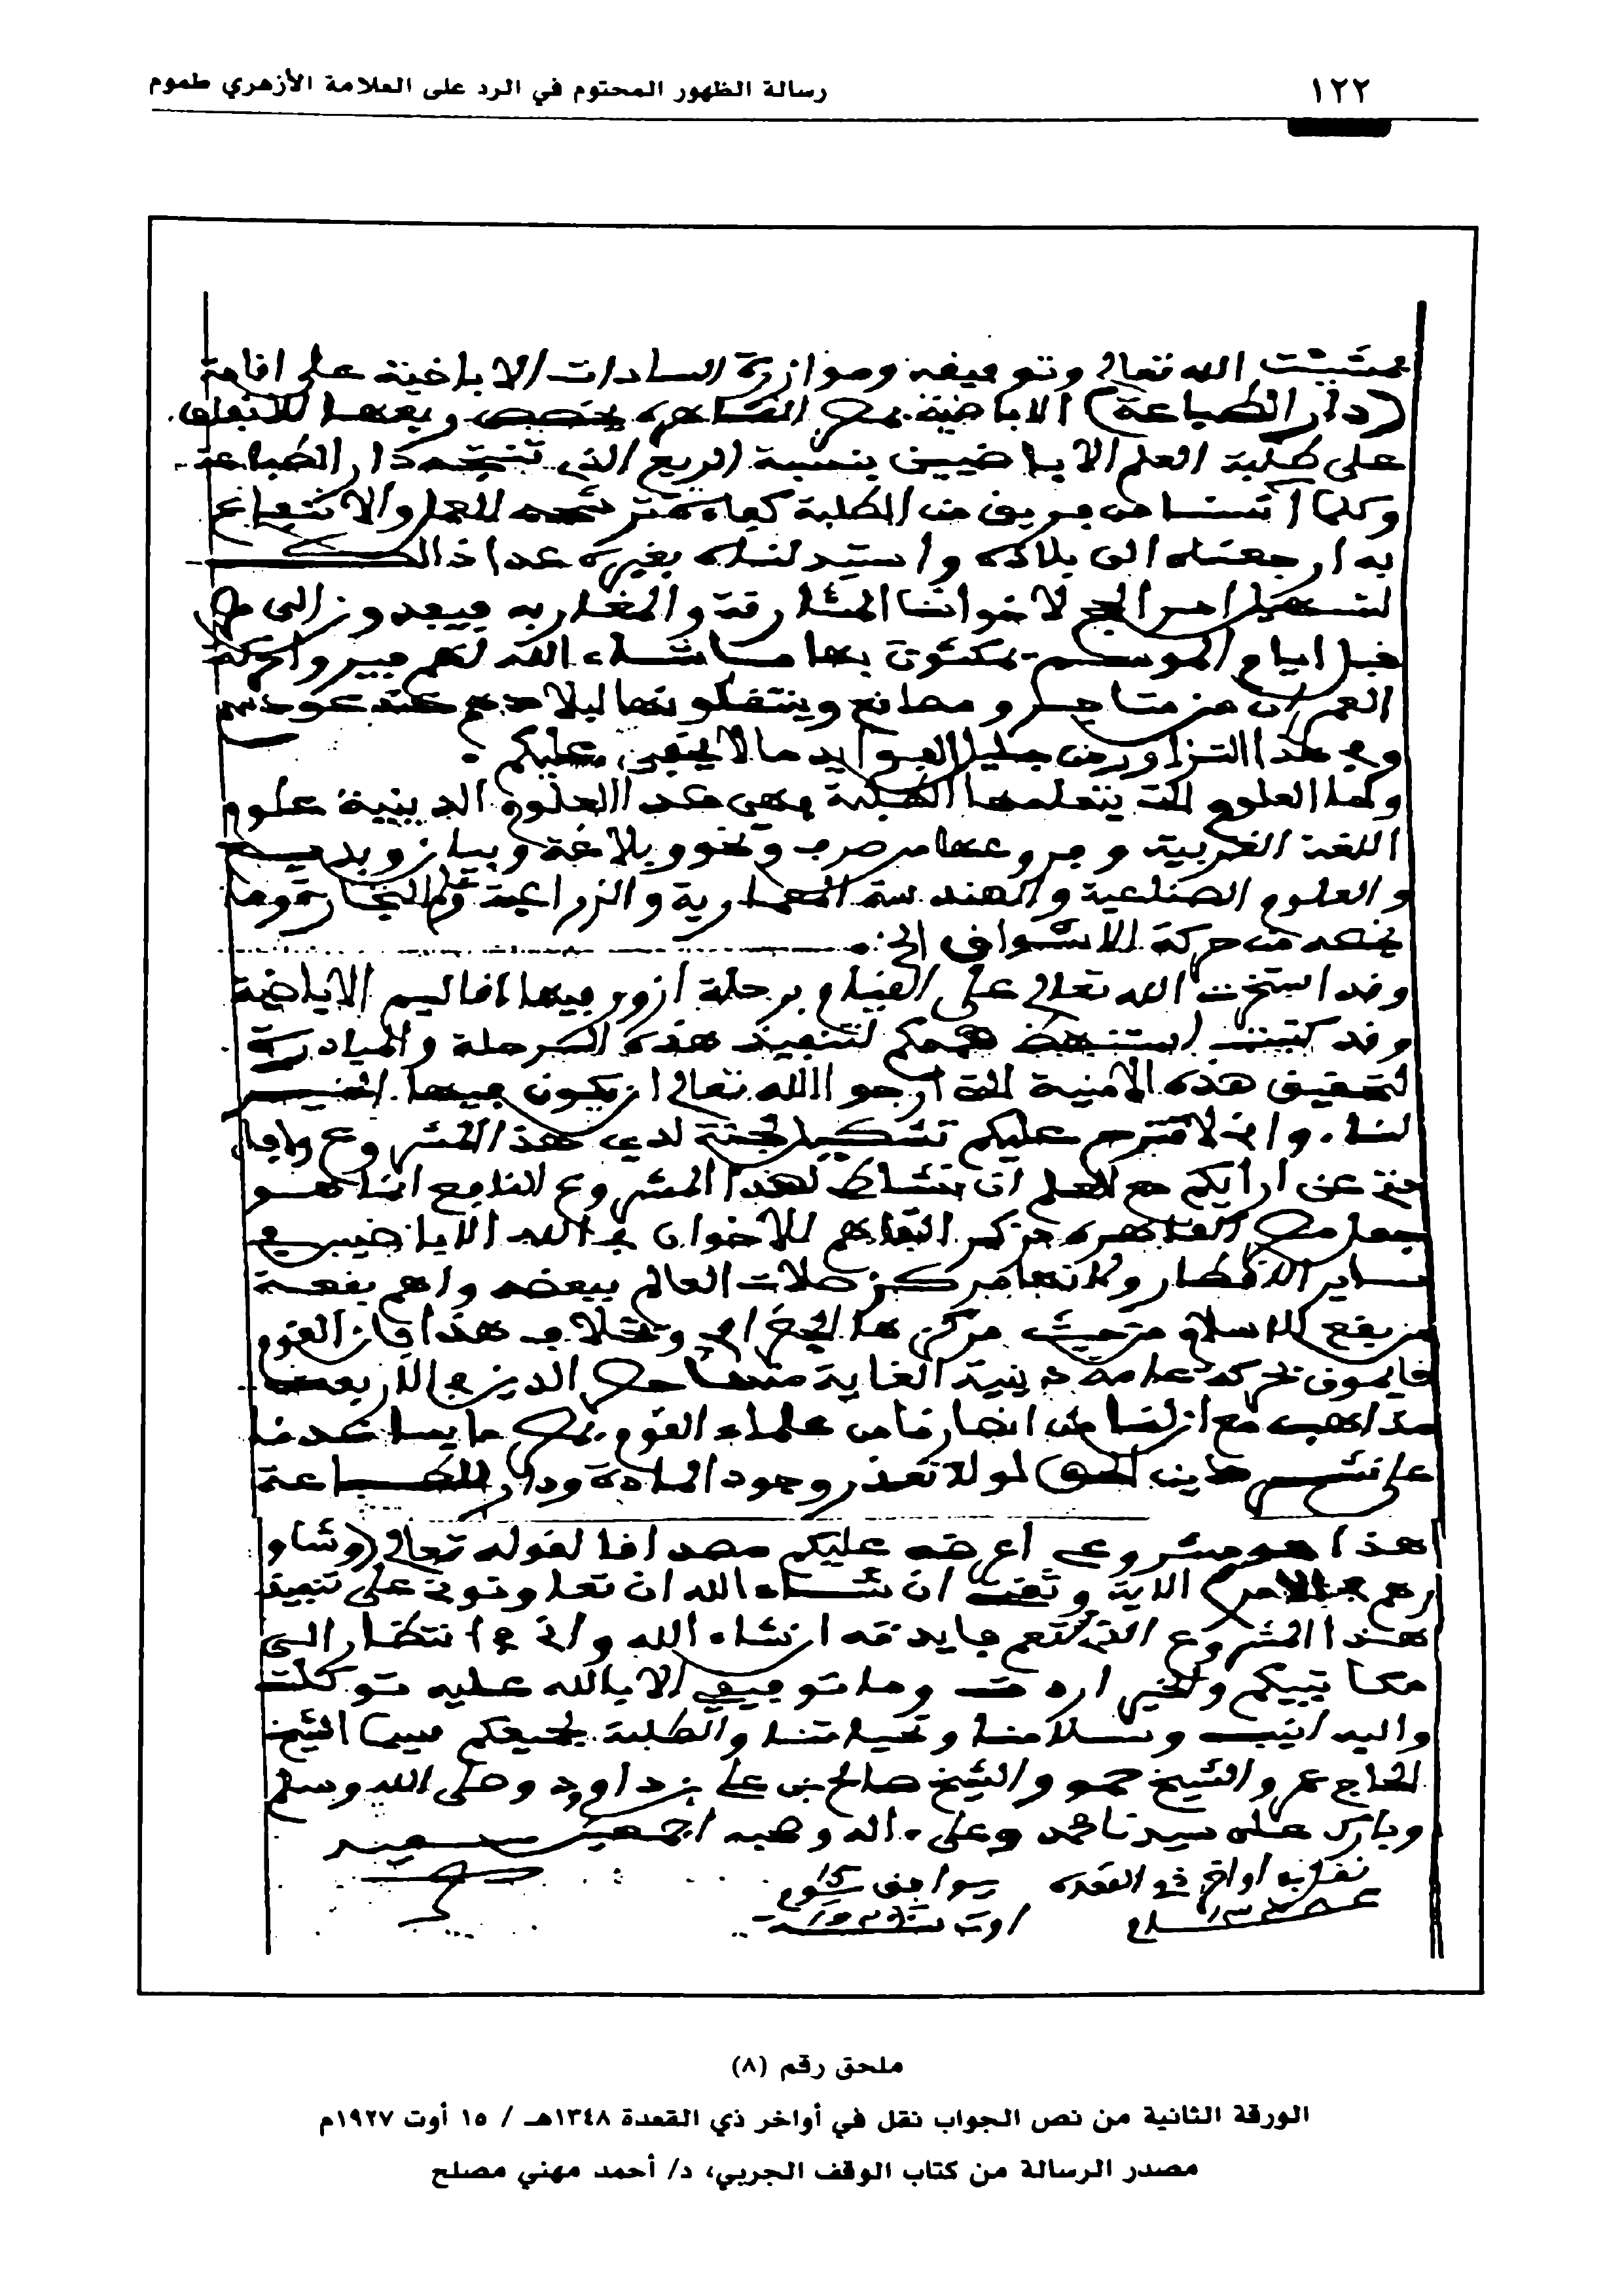 ١٢٢
رسالة الظهور المحتوم في الرد على العلامة الأزهري طموم
الله تعالى وتوفيقه وموازرة السادات الاباضية على اقامة
(دار الطباعة) الاباضية بمصر القاهره يخصص ريعها للانفاق
على طلبة العلم الاباضيين بنسبة الريع الذي تنتجه دار الطباعة
وكلما آنسنا من فريق من الطلبة كفاءة للعمل والانتفاع
به ارجعناه الى بلاده واستبدلناه بغيره عدا ذالك
لتسهيل امر الحج لاخواننا المشارقة والمغاربه فيفدون الى مصر
قبل ايام الموسم يمكثون بها ما شاء الله لهم فيروا حركة
العمران من متاجر ومصانع وينتقلونها لبلادهم عند عودتهم
وفي هذا التزاور من جليل الفوايد ما لا يخفى عليكم.
وأما العلوم التي يتعلمها الطلبة فهي هكذا العلوم الدينية علوم
اللغة العربية وفروعها من صرف ونحو وبلاغة وبيان وبديع
والعلوم الصناعية والهندسة المعمارية والزراعية
من حركة الاسواق الخ.
وقد استخرت الله تعالى على القيام برحلة ازور فيها اقاليم الاباضية
وقد كتبت استنهض هممكم لتنفيذ هذه الرحلة والمبادرة
لتحقيق هذه الامنية التي ارجو الله تعالى ان يكون فيها الخير
لنا. واني لاقترح عليكم تشكيل لجنة لدي هذا المشروع
عن ارايكم مع العلم ان نشاط لهذا المشروع النافع انما هو
جعل مصر القاهره مركز التفاهم للاخوان في الله الاباضيين في
ساير الاقطار ولانها مركز صلات العالم ببعضه واهم بقعة
من بقع الاسلام من حيث مركزها الجغرافي وخلاف هذا فان القوم
قايمون بحركة عامة دينية الغاية منها حصر الدين في الاربعة
مذاهب مع ان لنا من انصارنا من علماء القوم بمصر ما يساعدنا
على نشر دين الحق لولا تعذر وجود المادة ودار للطباعة
هذا هو مشروعي اعرضه عليكم مصداقا لقوله تعالى (وشاو
رهم في الامر) الاية وثقتي ان شاء الله ان تعاونوني على تنفيذ
هذا المشروع التي لتعم فايدته ان شاء الله واني في انتظار الى
مكاتبيكم والخير اردت وما توفيقي الا بالله عليه توكلت
واليه انيب وسلامنا وتحياتنا والطلبة لجميعكم سيما الشيخ
الحاج عمر والشيخ حمو والشيخ صالح بن علي بن داوود وصلى الله وسلم
وبارك على سيدنا محمد وعلى اله وصحبه اجمعين سعيد
نقل به اواخر ذو القعدة
يوافق
اوت
ملحق رقم (٨)
الورقة الثانية من نص الجواب نقل في أواخر ذي القعدة ١٣٤٨هـ / ١٥ أوت ١٩٢٧م
مصدر الرسالة من كتاب الوقف الجربي، د/ أحمد مهني مصلح